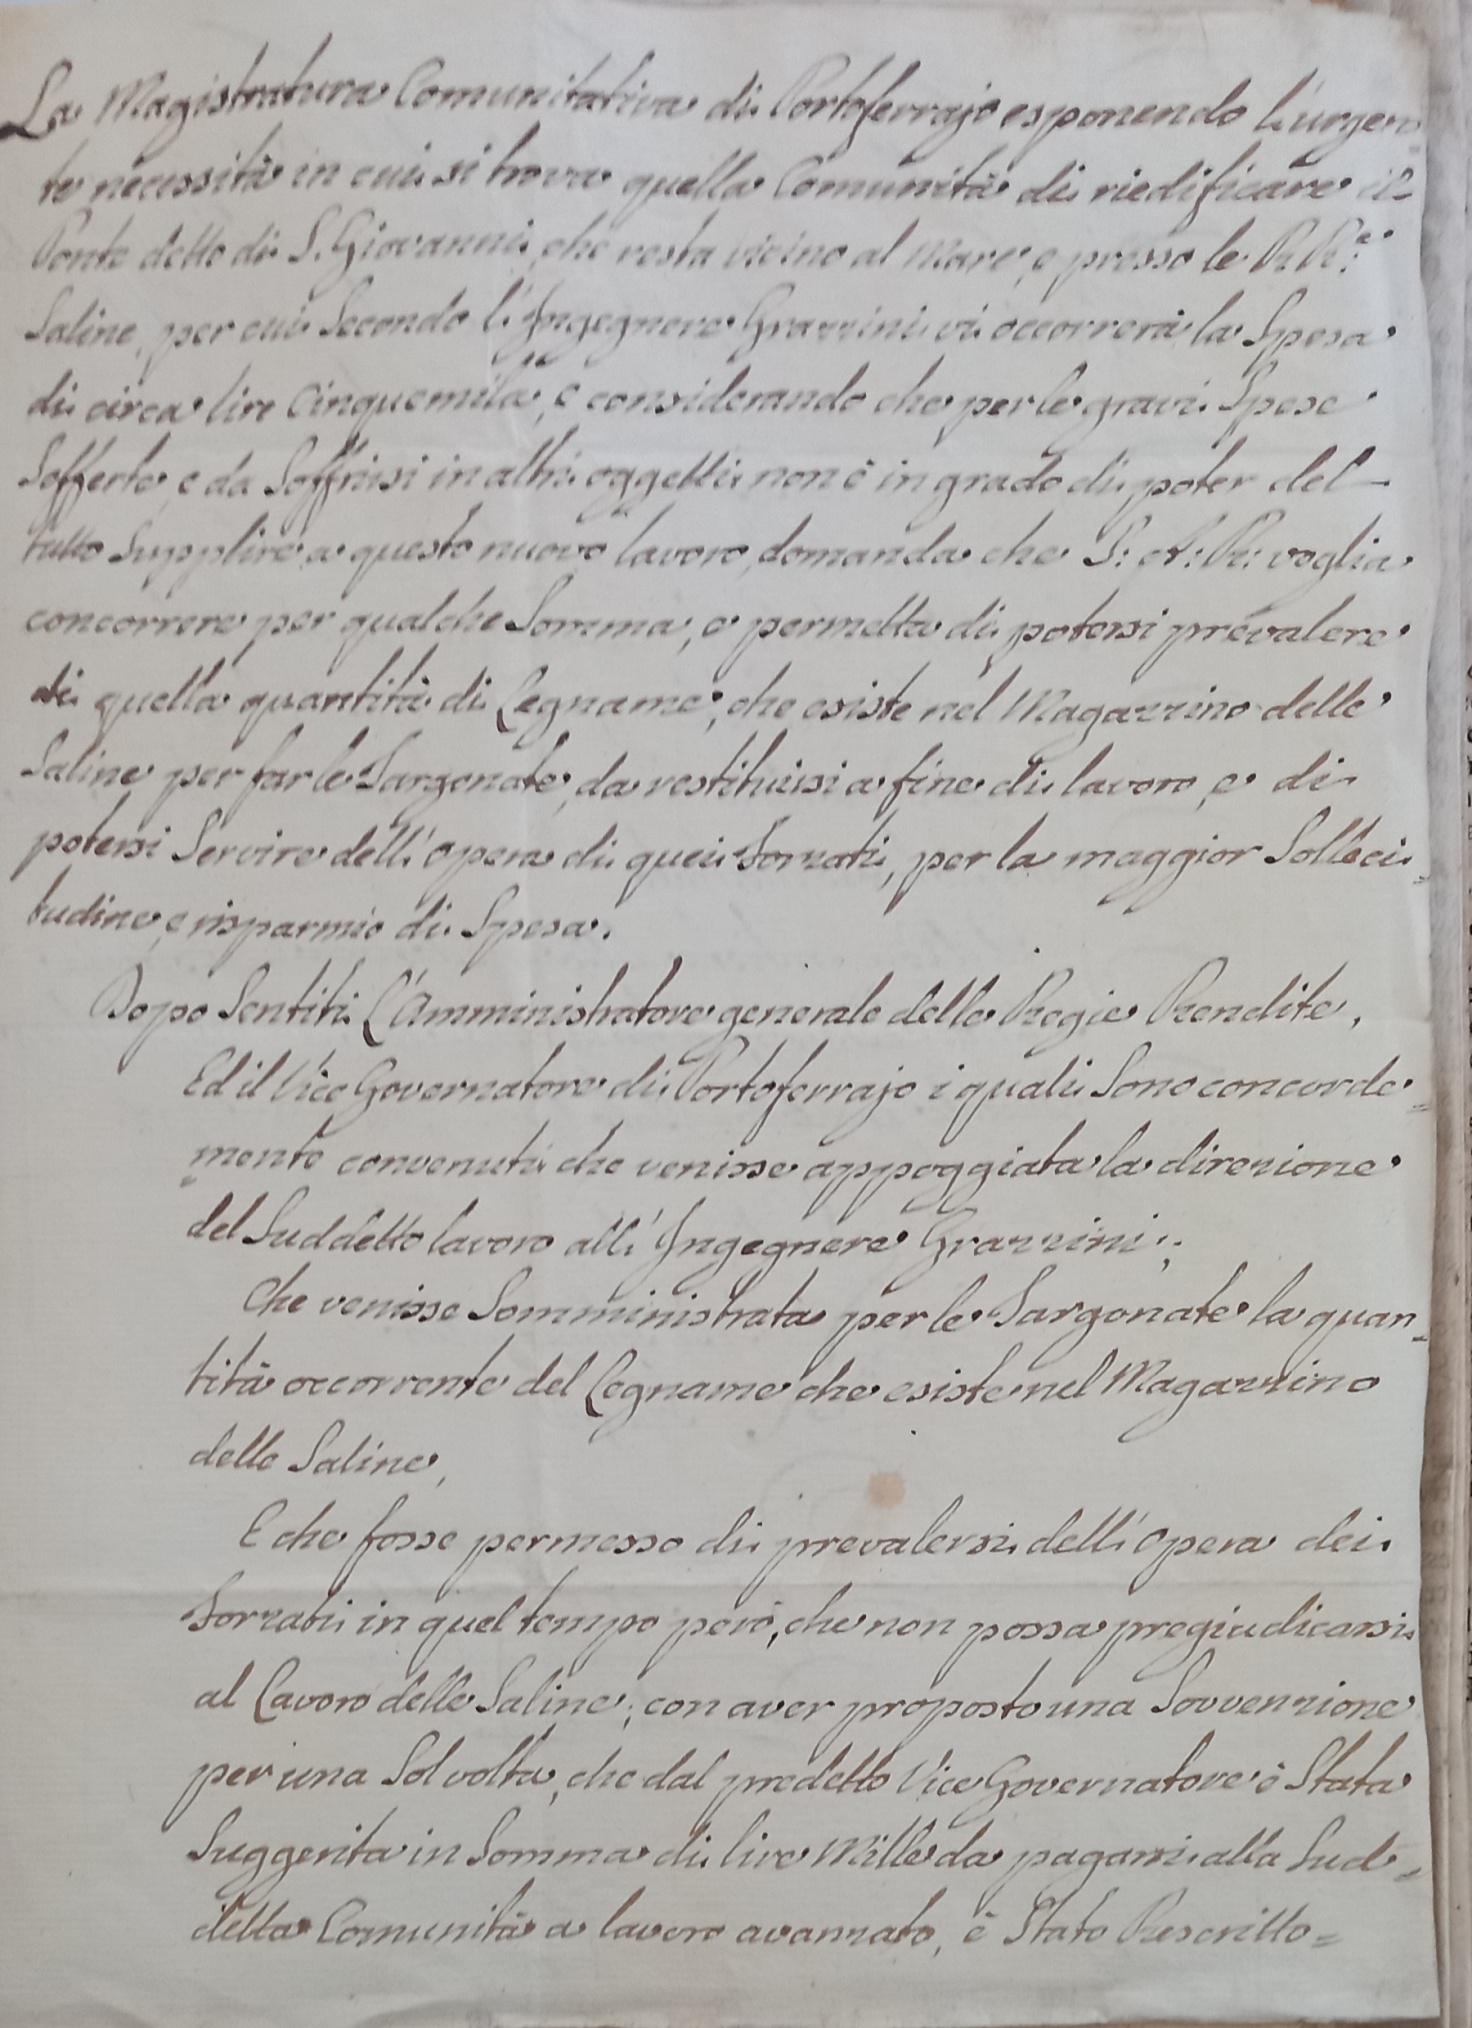 La Magistratura Comunitativa di Portoferrajo esponendo l'urgen=
te necessità in cui si trova quella Comunità di riedificare il
Ponte detto di S. Giovanni, che resta vicino al Mare, e presso le RR.e
Saline, per cui Secondo l'Ingegnere Grazzini vi occorrerà la Spesa
di circa lire Cinquemila, e considerando che per le gravi Spese
Sofferte, e da Soffrirsi in altri oggetti non è in grado di poter del
tutto Supplire a questo nuovo lavoro, domanda che S: A: R: voglia
concorrere per qualche Somma, e permetta di potersi prevalere
di quella quantità di Legname, che esiste nel Magazzino delle
Saline per far le Sargonate, da restituirsi a fine di lavoro, e di
potersi Servire dell'Opera di quei Forzati, per la maggior Solleci=
tudine, e risparmio di Spesa.
Dopo Sentiti l'Amministratore generale delle Regie Rendite,
Ed il Vice Governatore di Portoferrajo i quali Sono concorde=
mente convenuti che venisse appoggiata la direzione
del Suddetto lavoro all'Ingegnere Grazzini;
Che venisse Somministrata per le Sargonate la quan=
tità occorrente del Legname che esiste nel Magazzino
delle Saline,
E che fosse permesso di prevalersi dell'Opera dei
Forzati in quel tempo però, che non possa pregiudicarsi
al Lavoro delle Saline; con aver proposto una Sovvenzione
per una Sol volta, che dal predetto Vice Governatore è Stata
Suggerita in Somma di lire Mille da pagarsi alla Sud=
detta Comunità a lavoro avanzato, è Stato Rescritto=